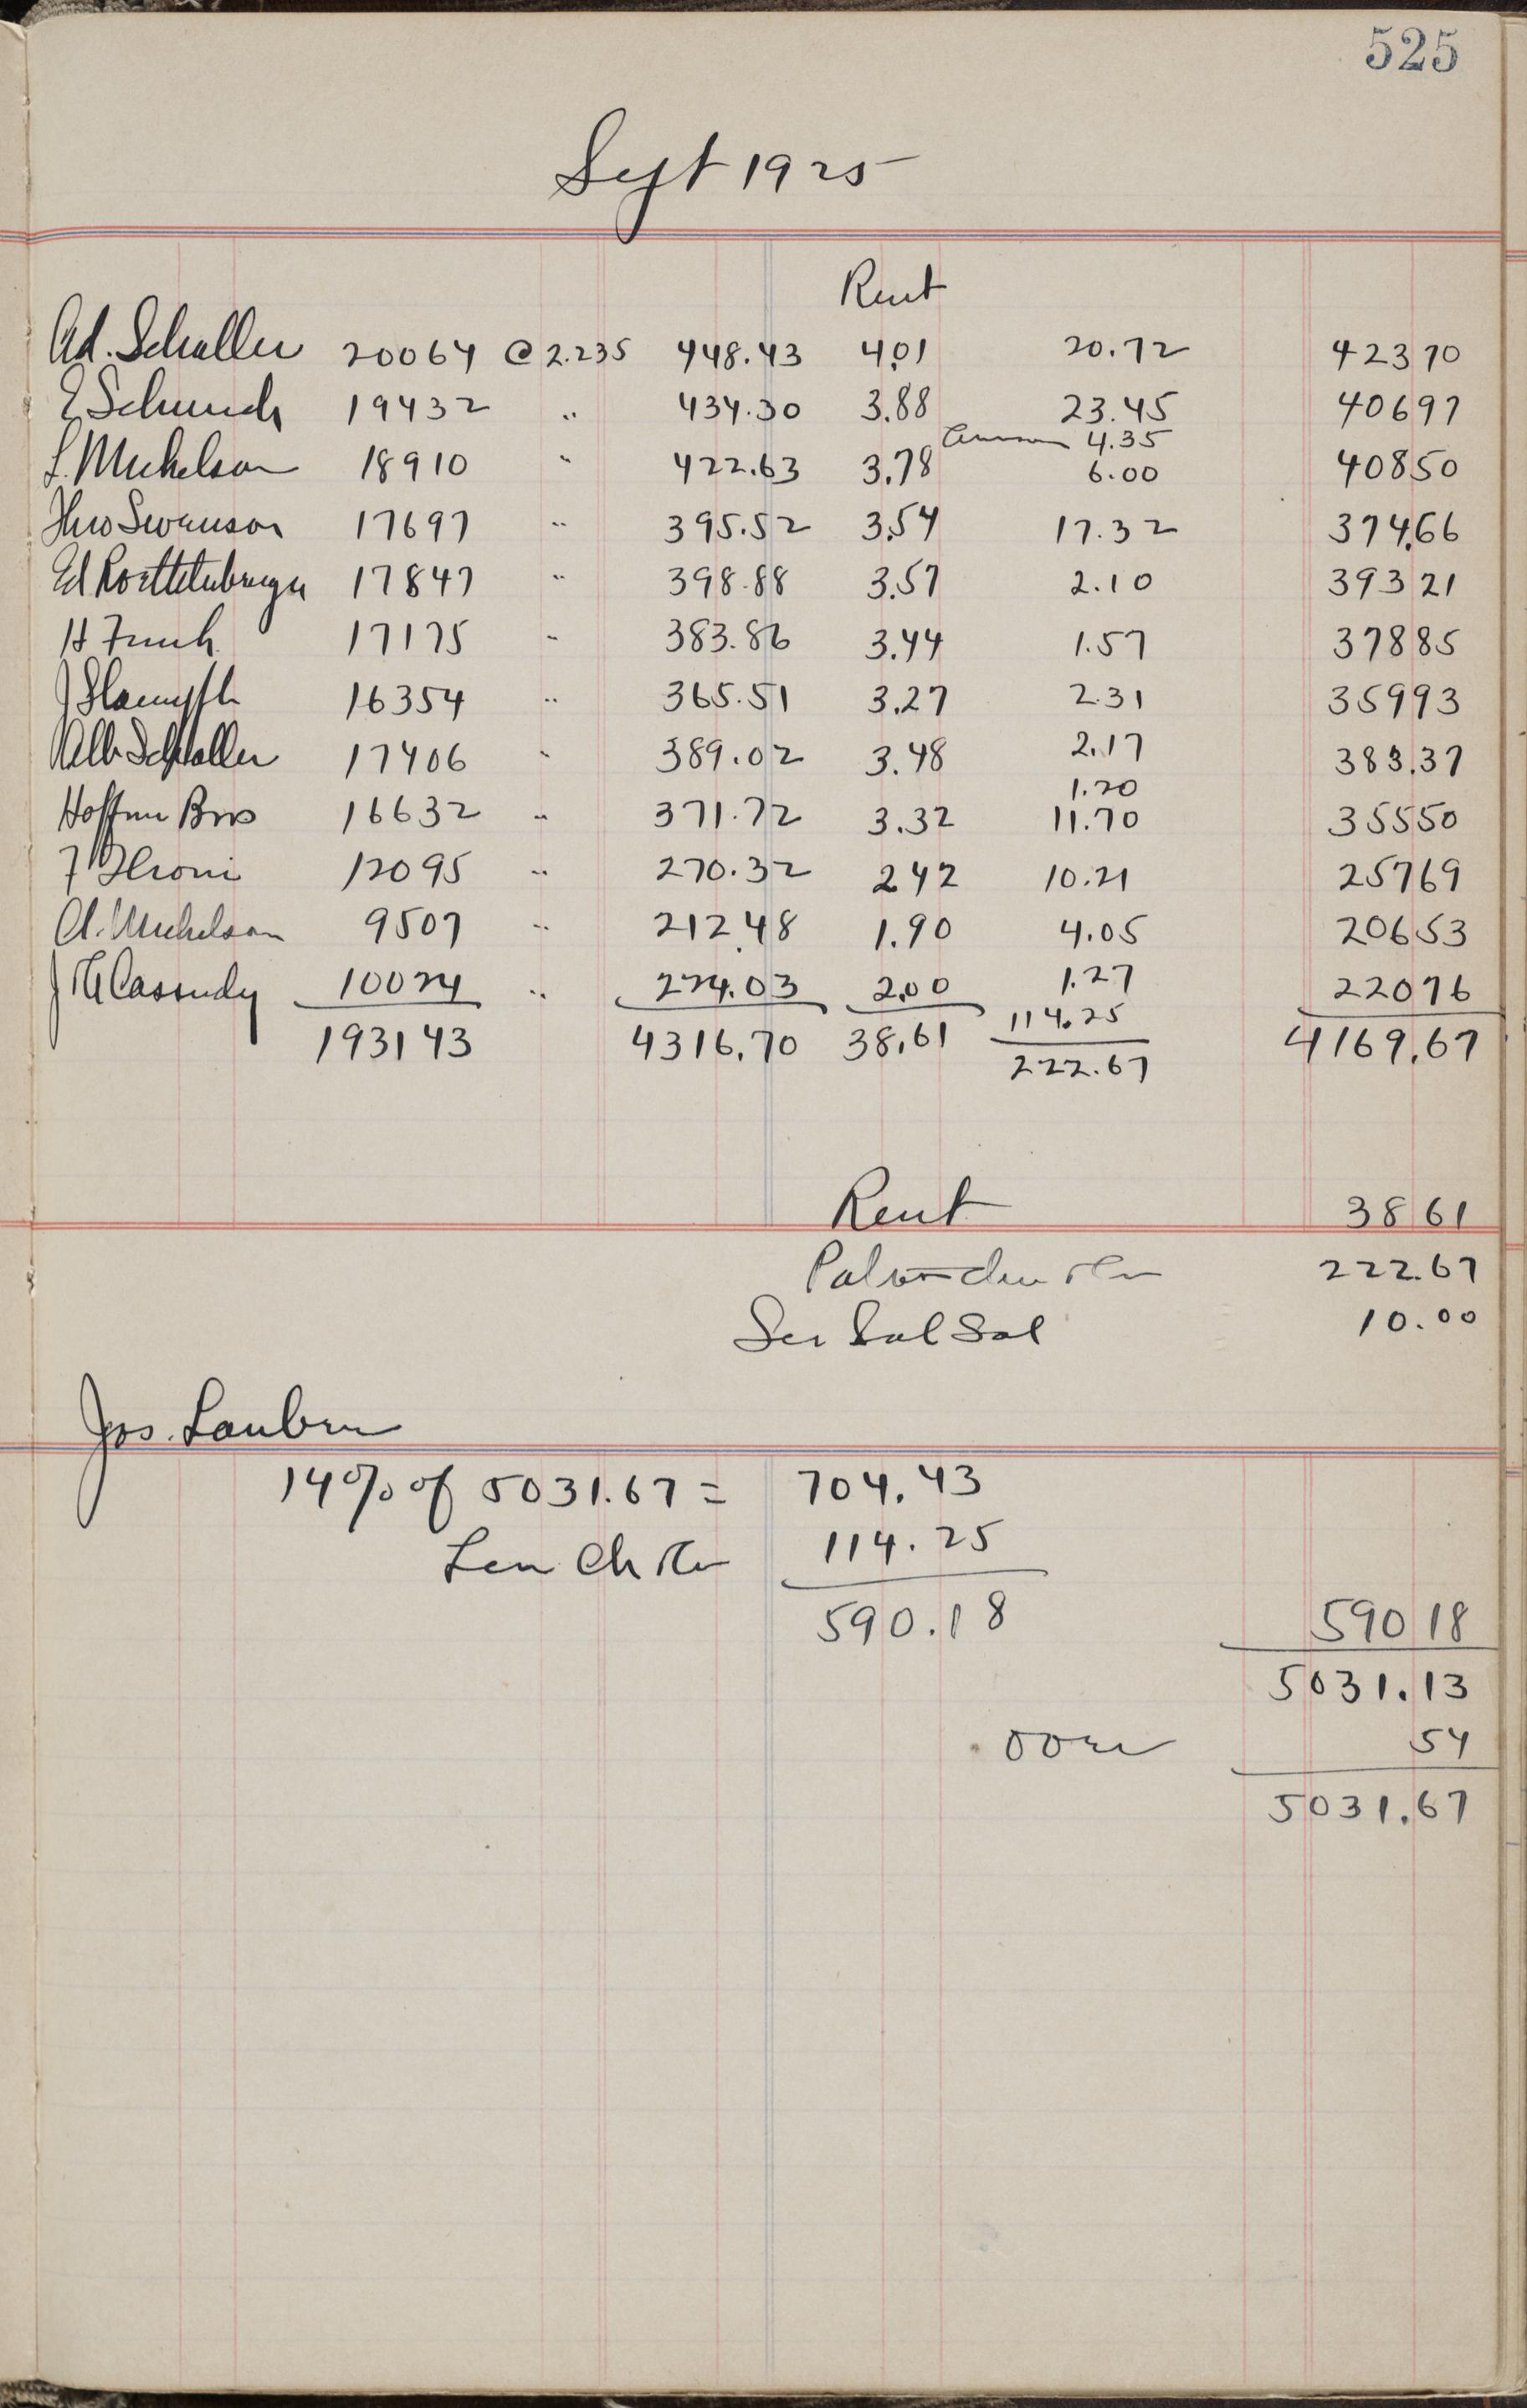 525
Sept 1925
Rent
Ad. Schaller 20064 @ 2.235 448.43 4.01 20.72 423 70
E Schunck 19432 " 434.30 3.88 23.45 406 97
4.35
L. Michelson 18910 " 422.63 3.78 6.00 408 50
Theo Swanson 17697 " 395.52 3.54 17.32 374.66
Ed 17847 " 398.88 3.57 2.10 393 21
H Funk 17175 " 383.86 3.44 1.57 378 85
J 16354 " 365.51 3.27 2.31 359 93
Alb Schaller 17406 " 389.02 3.48 2.17 383.37
1.20
Hoffman Bros 16632 " 371.72 3.32 11.70 355 50
F Thoni 12095 " 270.32 2 42 10.21 257 69
A. Michelson 9507 " 212.48 1.90 4.05 206 53
J Cassidy 10024 " 224.03 2.00 1.27 220 76
114.25
193143 4316.70 38.61 222.67 4169.67
Rent 38 61
222.67
Sal 10.00
Jos. Lauber
14% of 5031.67 = 704.43
Less Ch 114.25
590.18 590 18
5031.13
Over 54
5031.67